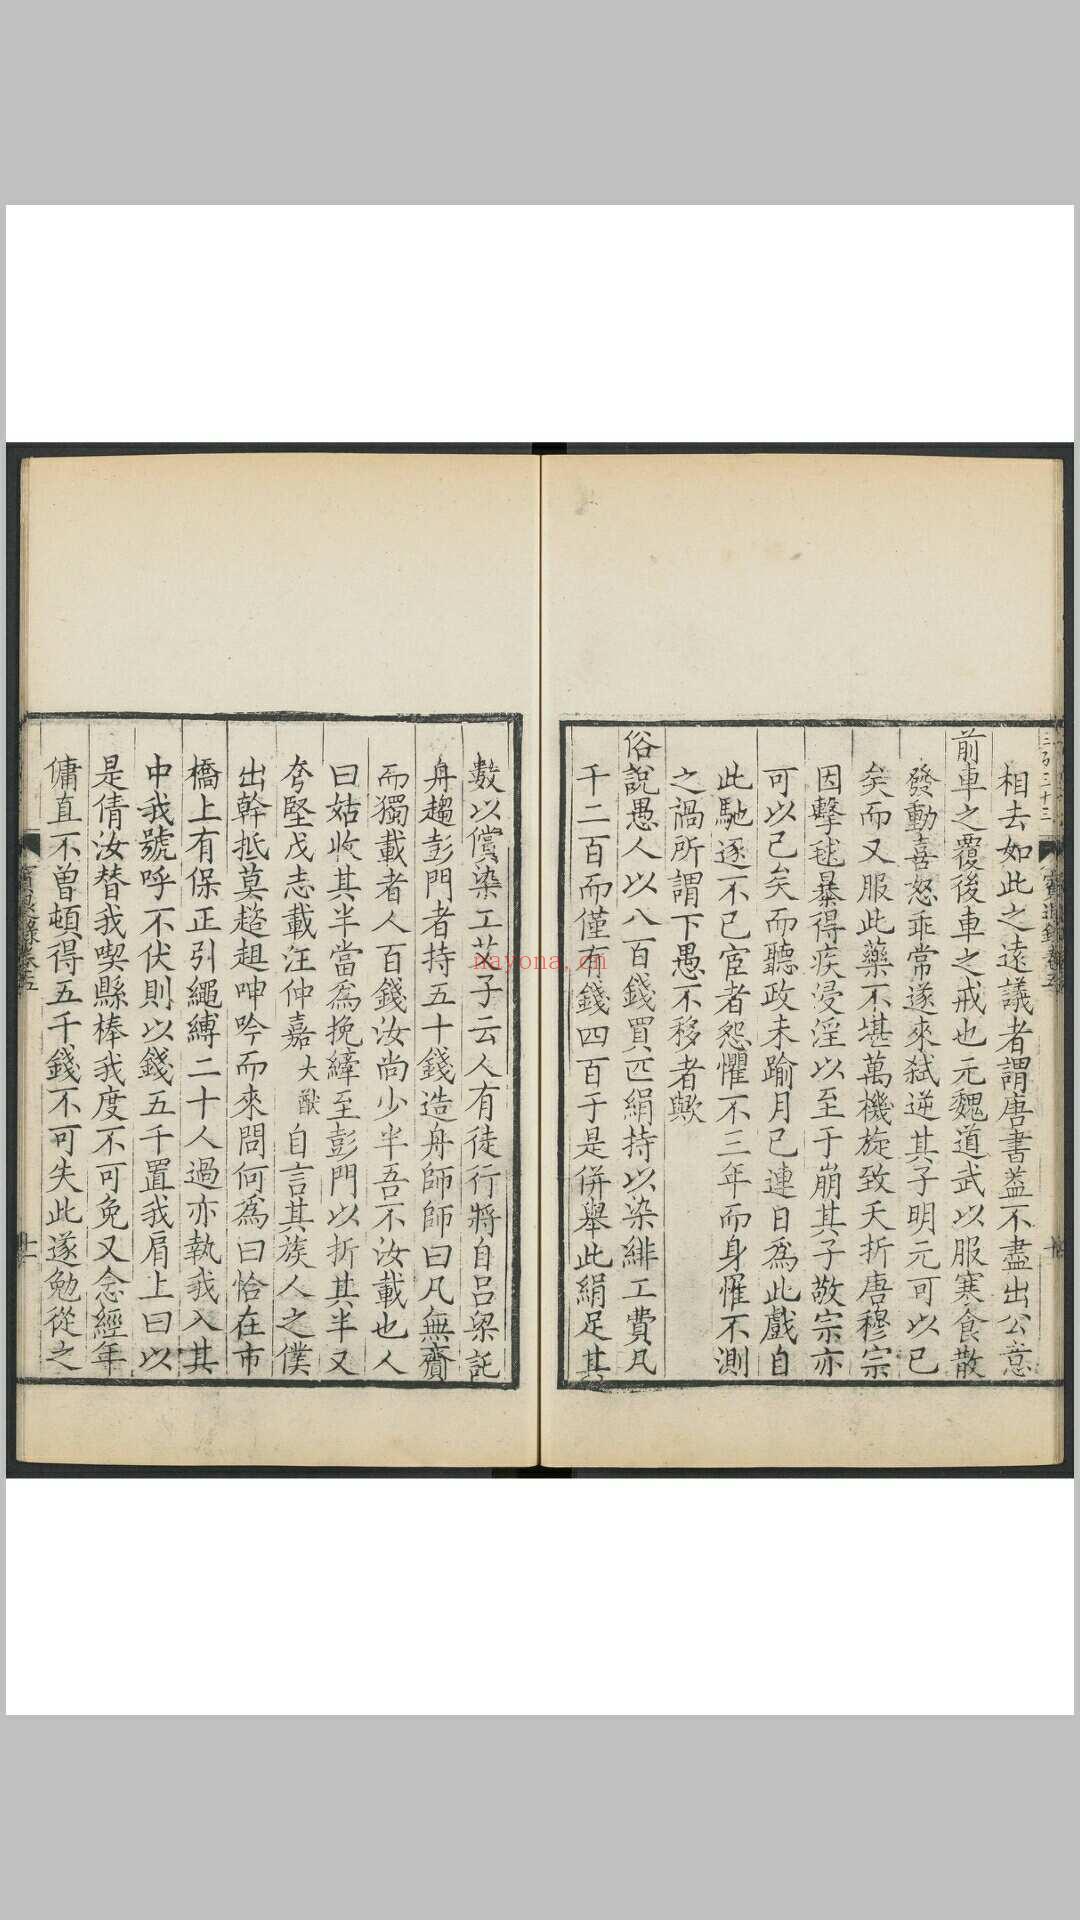 相去如此之遠議者謂唐書蓋不盡出公意
前車之覆後車之戒也元魏道武以服寒食散
發動喜怒乖常遂來弑逆其子明元可以已
矣而又服此藥不堪萬機旋致夭折唐穆宗
因擊毬暴得疾浸淫以至于崩其子敬宗亦
可以已矣而聽政未踰月已連日爲此戲自
此馳逐不已宦者怨懼不三年而身罹不測
之禍所謂下愚不移者歟
俗說愚人以八百錢買匹絹持以染緋工費凡
千二百而僅有錢四百于是併舉此絹足其
數以償染工艾子云人有徒行將自呂梁託
舟趨彭門者持五十錢造舟師師曰凡無齎
而獨載者人百錢汝尚少半吾不汝載也人
曰姑收其半當爲挽縴至彭門以折其半又
夸堅戊志載汪仲嘉大猷自言其族人之僕
出幹抵莫趦趄呻吟而來問何爲曰恰在市
橋上有保正引繩縛二十人過亦執我入其
中我號呼不伏則以錢五千置我肩上曰以
是倩汝替我喫縣棒我度不可免又念經年
傭直不曾頓得五千錢不可失此遂勉從之
賓退錄卷五
十一
nayona.cn